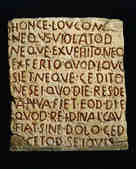 HONCE LOVCOM
NEQVS VIOLATOD
NEQVE EXVEHITO NE
EXFERTO QVOD LOV
SIET NEQVE CEDITO
NESEI QVO DIE RES DE
ANVA FIET EOD DIE
QVOD REI DINAI CAV
FIAT SINE DOLO CED
CETOD SEIQVIS